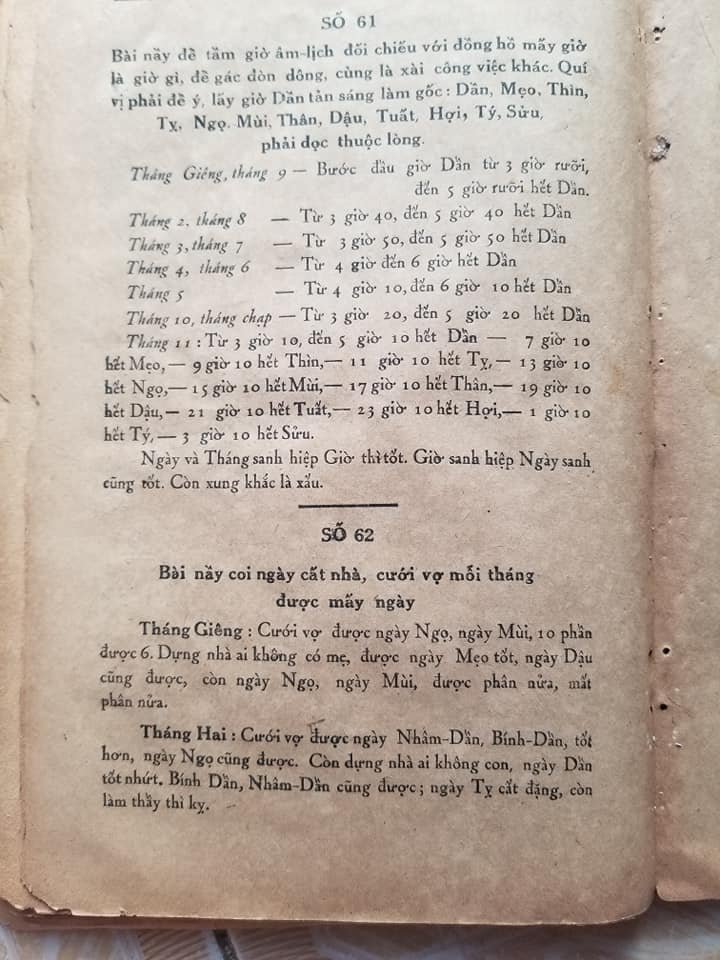 SỐ 61
Bài nầy để tầm giờ âm-lịch đối chiếu với đồng hồ mấy giờ
là giờ gì, để gác đòn dông, cùng là xài công việc khác. Quí
vị phải để ý, lấy giờ Dần tản sáng làm gốc : Dần, Mẹo, Thìn,
Tỵ, Ngọ, Mùi, Thân, Dậu, Tuất, Hợi, Tý, Sửu,
phải đọc thuộc lòng.
Tháng Giêng, tháng 9 — Bước đầu giờ Dần từ 3 giờ rưỡi,
đến 5 giờ rưỡi hết Dần.
Tháng 2, tháng 8 — Từ 3 giờ 40, đến 5 giờ 40 hết Dần
Tháng 3, tháng 7 — Từ 3 giờ 50, đến 5 giờ 50 hết Dần
Tháng 4, tháng 6 — Từ 4 giờ đến 6 giờ hết Dần
Tháng 5 — Từ 4 giờ 10, đến 6 giờ 10 hết Dần
Tháng 10, tháng chạp — Từ 3 giờ 20, đến 5 giờ 20 hết Dần
Tháng 11 : Từ 3 giờ 10, đến 5 giờ 10 hết Dần — 7 giờ 10
hết Mẹo,— 9 giờ 10 hết Thìn,— 11 giờ 10 hết Tỵ,— 13 giờ 10
hết Ngọ,— 15 giờ 10 hết Mùi,— 17 giờ 10 hết Thân,— 19 giờ 10
hết Dậu,— 21 giờ 10 hết Tuất,— 23 giờ 10 hết Hợi,— 1 giờ 10
hết Tý,— 3 giờ 10 hết Sửu.
Ngày và Tháng sanh hiệp Giờ thì tốt. Giờ sanh hiệp Ngày sanh
cũng tốt. Còn xung khắc là xấu.
SỐ 62
Bài nầy coi ngày cất nhà, cưới vợ mỗi tháng
được mấy ngày
Tháng Giêng : Cưới vợ được ngày Ngọ, ngày Mùi, 10 phần
được 6. Dựng nhà ai không có mẹ, được ngày Mẹo tốt, ngày Dậu
cũng được, còn ngày Ngọ, ngày Mùi, được phân nửa, mất
phân nửa.
Tháng Hai : Cưới vợ được ngày Nhâm-Dần, Bính-Dần, tốt
hơn, ngày Ngọ cũng được. Còn dựng nhà ai không con, ngày Dần
tốt nhứt. Bính Dần, Nhâm-Dần cũng được ; ngày Tỵ cất đặng, còn
làm thầy thì kỵ.